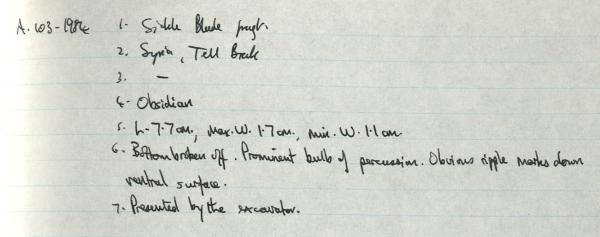 A.603-1984 1- Sickle Blade fragt.
2. Syria, Tell Brak
3. —
4- Obsidian
5. L-7.7cm., Max.W. 1.7cm., min. W. 1.1cm.
6- Bottom broken off. Prominent bulb of percussion. Obvious ripple marks down
ventral surface.
7. Presented by the excavator.